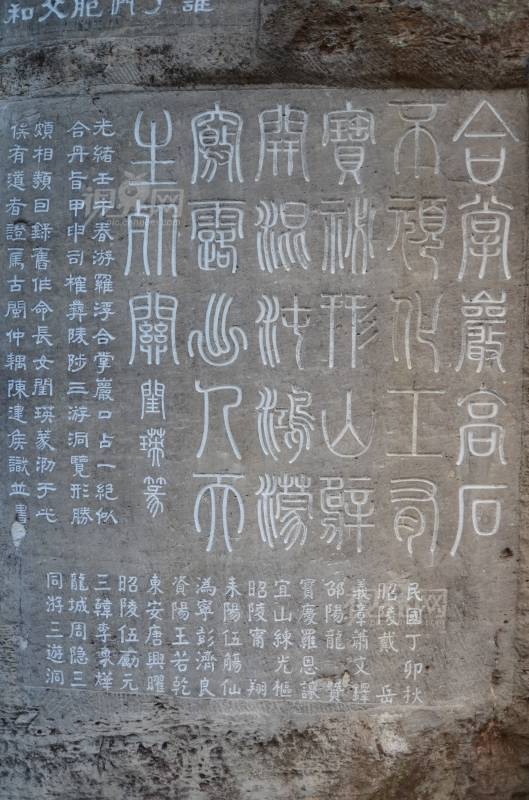 合掌巖高石
不頑化工有
寶祕形山擘
開混沌鴻濛
竅露出人天
生死關 閨瑛篆
光緒壬午春游羅浮合掌巖口占一絕似
合丹旨甲申司榷彝陵陟三游洞覽形勝
頗相類回錄舊作命長女閨瑛篆泐于此
俟有道者證焉古閩仲耦陳建矦識並書
民國丁卯秋
昭陵戴岳
義章蕭文鐸
邵陽龍贊
寶慶羅恩讓
宜山練光樞
昭陵甯翔
耒陽伍觴仙
溈寧彭濟良
資陽王若乾
東安唐興曜
昭陵伍勵元
三韓李秉燁
龍城周隱三
同游三遊洞